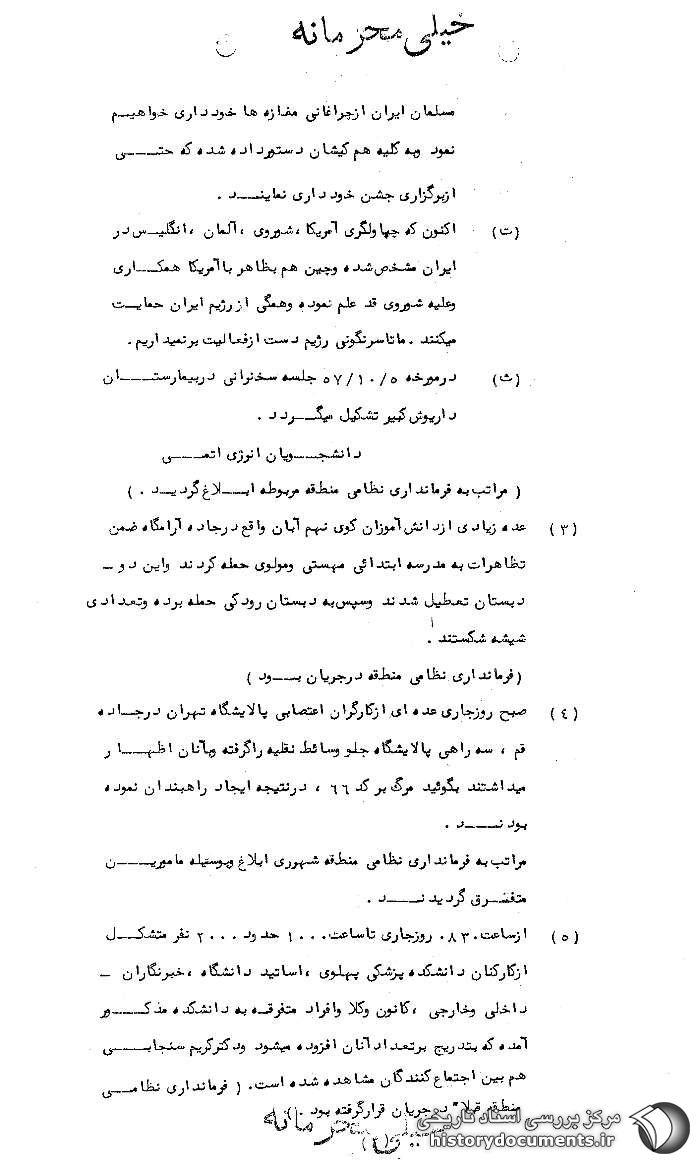 خیلی محرمانه
مسلمان ایران از چراغانی مغازه ها خودداری خواهیم
نمود وبه کلیه هم کیشان دستور داده شده که حتی
از برگزاری جشن خودداری نمایند .
(ت) اکنون که چپاولگری آمریکا ، شوروی ، آلمان ، انگلیس در
ایران مشخص شده وچین هم بظاهر با آمریکا همکاری
وعلیه شوروی قد علم نموده وهمگی از رژیم ایران حمایت
میکنند . ما تا سرنگونی رژیم دست از فعالیت برنمیداریم .
(ث) در مورخه ۵۷/۱۰/۵ جلسه سخنرانی در بیمارستان
داریوش کبیر تشکیل میگردد .
دانشجویان انرژی اتمی
( مراتب به فرمانداری نظامی منطقه مربوطه ابلاغ گردید . )
(۳) عده زیادی از دانش آموزان کوی نهم آبان واقع در جاده آرامگاه ضمن
تظاهرات به مدرسه ابتدائی مهستی ومولوی حمله کردند واین دو -
دبستان تعطیل شدند وسپس به دبستان رودکی حمله برده وتعدادی
شیشه شکستند .
( فرمانداری نظامی منطقه در جریان بود )
(٤) صبح روز جاری عده ای از کارگران اعتصابی پالایشگاه تهران در جاده
قم ، سه راهی پالایشگاه جلو وسائط نقلیه را گرفته وبآنان اظهار
میداشتند بگوئید مرگ بر کد ٦٦ ، در نتیجه ایجاد راهبندان نموده
بودند .
مراتب به فرمانداری نظامی منطقه شهرری ابلاغ وبوسیله مامورین
متفرق گردیدند .
(۵) از ساعت ۰۸۳۰ روز جاری تا ساعت ۱۰۰۰ حدود ۲۰۰۰ نفر متشکل
از کارکنان دانشکده پزشکی پهلوی ، اساتید دانشگاه ، خبرنگاران -
داخلی وخارجی ، کانون وکلا وافراد متفرقه به دانشکده مذکور
آمده که بتدریج بر تعداد آنان افزوده میشود ودکتر کریم سنجابی
هم بین اجتماع کنندگان مشاهده شده است . ( فرمانداری نظامی
منطقه قبلا" در جریان قرار گرفته بود . )
خیلی محرمانه
مرکز بررسی اسناد تاریخی
historydocuments.ir